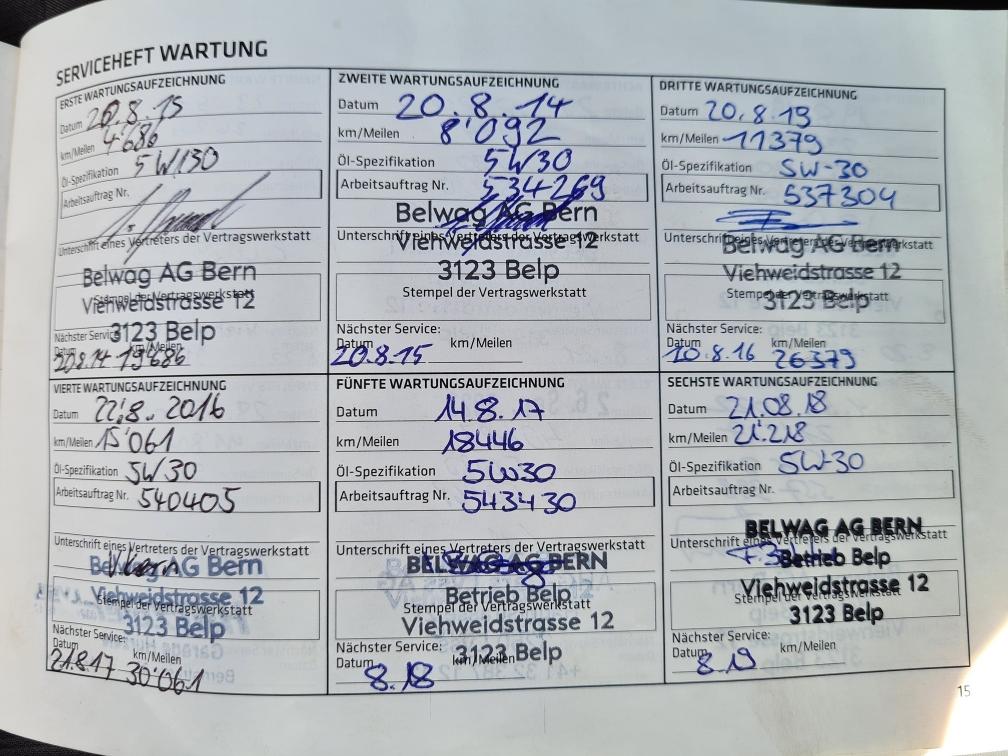 SERVICEHEFT WARTUNG
ERSTE WARTUNGSAUFZEICHNUNG
Datum 20.8.15
km/Meilen 4'686
Öl-Spezifikation 5W/30
Arbeitsauftrag Nr.
Unterschrift eines Vertreters der Vertragswerkstatt
Belwag AG Bern
Viehweidstrasse 12
Stempel der Vertragswerkstatt
3123 Belp
Nächster Service:
Datum km/Meilen
20.8.14 19'686
ZWEITE WARTUNGSAUFZEICHNUNG
Datum 20.8.14
km/Meilen 8'092
Öl-Spezifikation 5W30
Arbeitsauftrag Nr. 534269
Belwag AG Bern
Unterschrift eines Vertreters der Vertragswerkstatt
Viehweidstrasse 12
3123 Belp
Stempel der Vertragswerkstatt
Nächster Service:
Datum km/Meilen
20.8.15
DRITTE WARTUNGSAUFZEICHNUNG
Datum 20.8.15
km/Meilen 11379
Öl-Spezifikation 5W-30
Arbeitsauftrag Nr. 537304
Unterschrift eines Vertreters der Vertragswerkstatt
Belwag AG Bern
Viehweidstrasse 12
Stempel der Vertragswerkstatt
3123 Belp
Nächster Service:
Datum km/Meilen
20.8.16 26379
VIERTE WARTUNGSAUFZEICHNUNG
Datum 22.8.2016
km/Meilen 15'061
Öl-Spezifikation 5W30
Arbeitsauftrag Nr. 540405
Unterschrift eines Vertreters der Vertragswerkstatt
Belwag AG Bern
Viehweidstrasse 12
Stempel der Vertragswerkstatt
3123 Belp
Nächster Service:
Datum km/Meilen
21.8.17 30'061
FÜNFTE WARTUNGSAUFZEICHNUNG
Datum 14.8.17
km/Meilen 18446
Öl-Spezifikation 5W30
Arbeitsauftrag Nr. 543430
Unterschrift eines Vertreters der Vertragswerkstatt
BELWAG AG BERN
Betrieb Belp
Stempel der Vertragswerkstatt
Viehweidstrasse 12
Nächster Service:
3123 Belp
Datum km/Meilen
8.18
SECHSTE WARTUNGSAUFZEICHNUNG
Datum 21.08.18
km/Meilen 21'218
Öl-Spezifikation 5W-30
Arbeitsauftrag Nr.
BELWAG AG BERN
Unterschrift eines Vertreters der Vertragswerkstatt
Betrieb Belp
Viehweidstrasse 12
Stempel der Vertragswerkstatt
3123 Belp
Nächster Service:
Datum km/Meilen
8.19
15